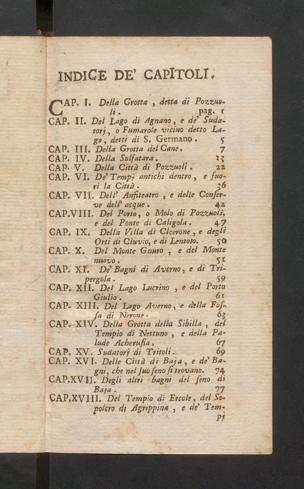 INDICE DE' CAPITOLI.
CAP. I. Della Grotta, detta di Pozzuo-
li. pag. 1
CAP. II. Del Lago di Agnano, e de' Suda-
torj, o Fumarole vicino detto La-
go, detti di S. Germano. 5
CAP. III. Della Grotta del Cane. 7
CAP. IV. Della Solfatara. 13
CAP. V. Della Città di Pozzuoli. 22
CAP. VI. De' Tempj antichi dentro, e fuo-
ri la Città. 36
CAP. VII. Dell' Anfiteatro, e delle Conser-
ve dell' acque. 42
CAP.VIII. Del Porto, o Molo di Pozzuoli,
e del Ponte di Caligola. 47
CAP. IX. Della Villa di Cicerone, e degli
Orti di Cluvio, e di Lentolo. 50
CAP. X. Del Monte Gauro, e del Monte
nuovo. 51
CAP. XI. De' Bagni di Averno, e di Tri-
pergola. 59
CAP. XII. Del Lago Lucrino, e del Porto
Giulio. 61
CAP. XIII. Del Lago Averno, e della Fos-
sa di Nerone. 63
CAP. XIV. Della Grotta della Sibilla, del
Tempio di Nettuno, e della Pa-
lude Acherusia. 67
CAP. XV. Sudatorj di Tritoli. 69
CAP. XVI. Delle Città di Baja, e de' Ba-
gni, che nel suo seno si trovano. 74
CAP.XVII. Degli altri bagni del seno di
Baja. 77
CAP.XVIII. Del Tempio di Ercole, del Se-
polcro di Agrippina, e de' Tem-
pj